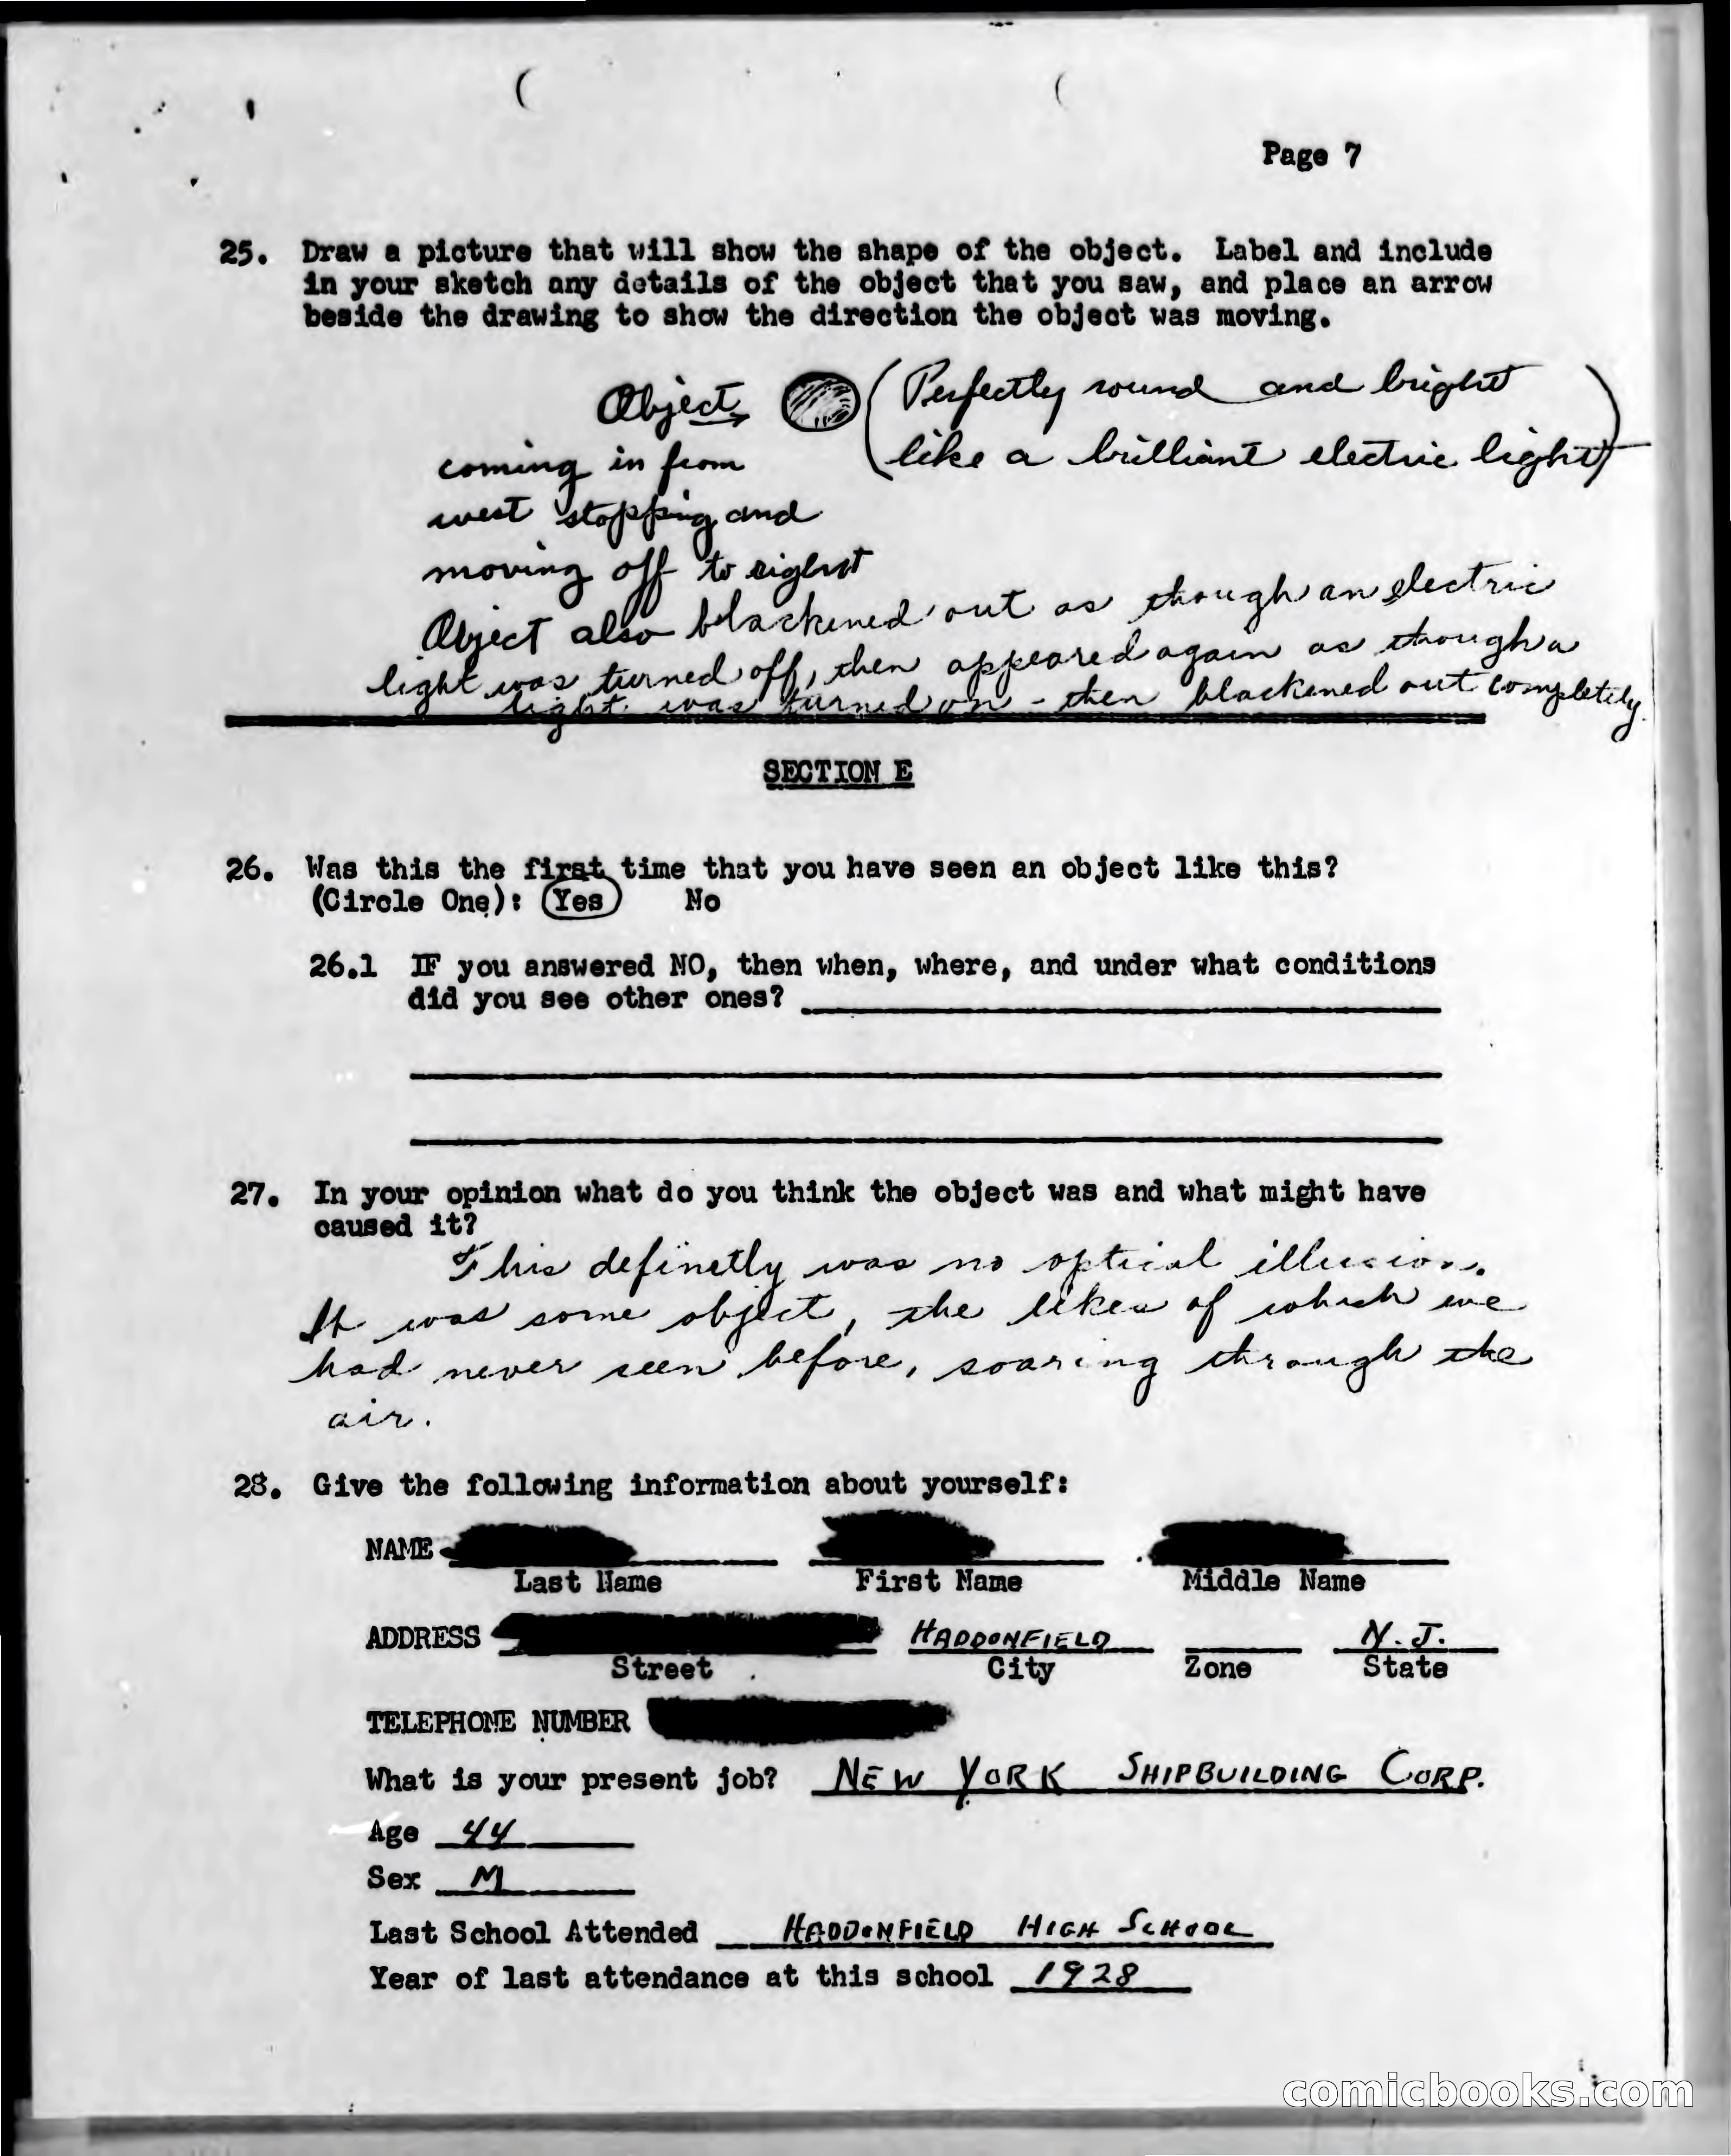 Page 7
25. Draw a picture that will show the shape of the object. Label and include
in your sketch any details of the object that you saw, and place an arrow
beside the drawing to show the direction the object was moving.
Object (Perfectly round and bright
coming in from like a brilliant electric light)
west stopping and
moving off to right
Object also blackened out as though an electric
light was turned off, then appeared again as though a
light was turned on - then blackened out completely.
SECTION E
26. Was this the first time that you have seen an object like this?
(Circle One): Yes No
26.1 IF you answered NO, then when, where, and under what conditions
did you see other ones?
27. In your opinion what do you think the object was and what might have
caused it?
This definetly was no optical illusion.
It was some object, the likes of which we
had never seen before, soaring through the
air.
28. Give the following information about yourself:
NAME
Last Name First Name Middle Name
ADDRESS HADDONFIELD N. J.
Street City Zone State
TELEPHONE NUMBER
What is your present job? NEW YORK SHIPBUILDING CORP.
Age 44
Sex M
Last School Attended HADDONFIELD HIGH SCHOOL
Year of last attendance at this school 1928
comicbooks.com